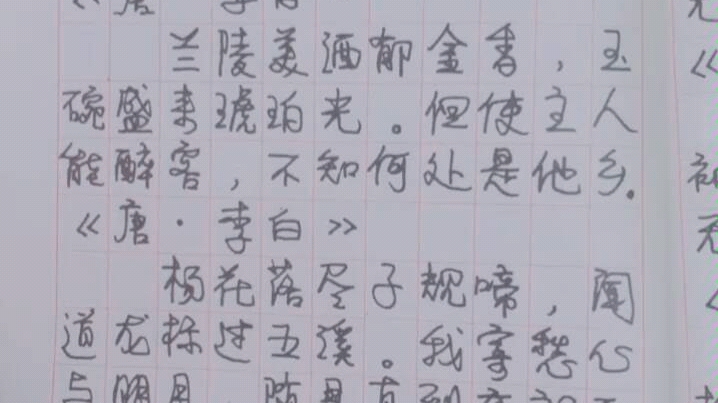 《唐·李白
兰陵美酒郁金香，玉
碗盛来琥珀光。但使主人
能醉客，不知何处是他乡。
《唐·李白》
杨花落尽子规啼，闻
道龙标过五溪。我寄愁心
与明月，随